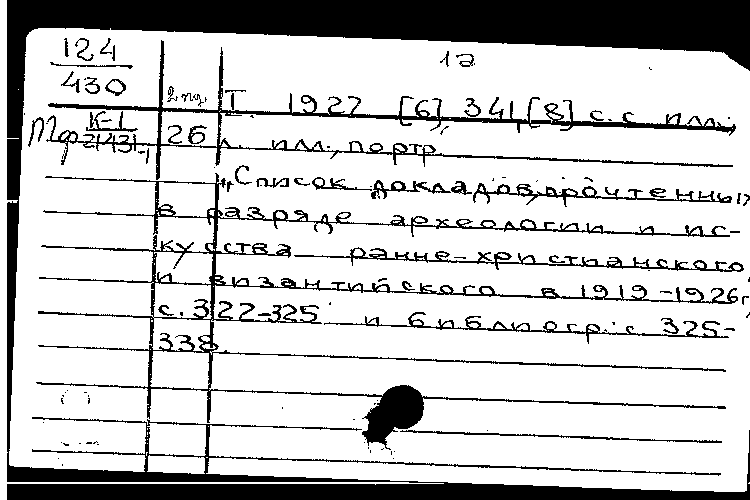 124
430
1а
2 пд. I. 1927 [6], 341, [8] с. с илл.,
К-1
Мф 21431-1
26 л. илл., портр.
„Список докладов, прочтенных
в разряде археологии и ис-
кусства ранне-христианского
и византийского в 1919-1926г.,
с. 322-325 и библиогр.: с. 325-
338.